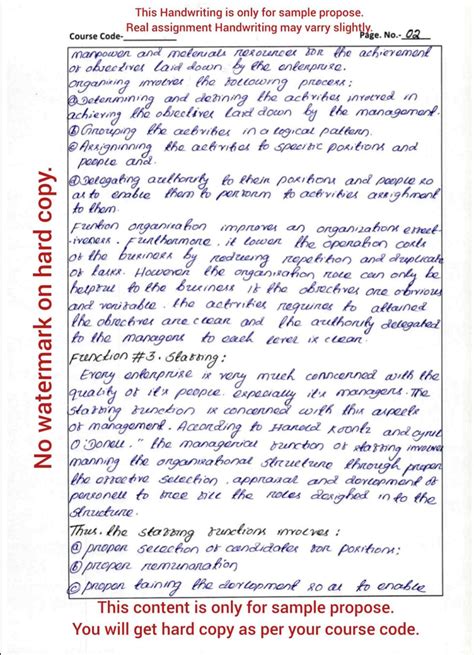 This Handwriting is only for sample propose.
Real assignment Handwriting may varry slightly.
Course Code-
Page. No.- 02
manpower and materials resources for the achievement
of objectives laid down by the enterprise.
Organizing involves the following process;
ⓐ Determining and defining the activities involved in
achieving the objectives laid down by the management.
ⓑ Grouping the activities in a logical pattern.
ⓒ Assigninning the activities to specific positions and
people and.
ⓓ Delegating authority to their positions and people so
as to enable them to perform to activities assighment
to them.
Funtion organisation improves an organizations effect-
iveness. Furthermore, it lower the operation costs
of the business by reducing repetition and duplicate
of tasks. However the organisation role can only be
helpful to the business if the objectives are obvious
and verifable. the activities requires to attained
the objectives are clear and the authority delegated
to the managers to each level is clear.
Function #3. Staffing:
Every enterprise is very much concerned with the
quality of it's people, especially it's managers. The
staffing function is concerned with this aspects
of management. According to Harold Koontz and cyril
O'Donell. "the managerial function of staffing involves
manning the organisational structure through proper
the effective selection, appraisal and dovlopment of
personell to the roles desighed in to the
structure.
Thus. the staffing functions involves:
ⓐ proper selection of candidates for positions;
ⓑ proper remunaration
ⓒ proper taining the dovlopment so as to enable
No watermark on hard copy.
This content is only for sample propose.
You will get hard copy as per your course code.